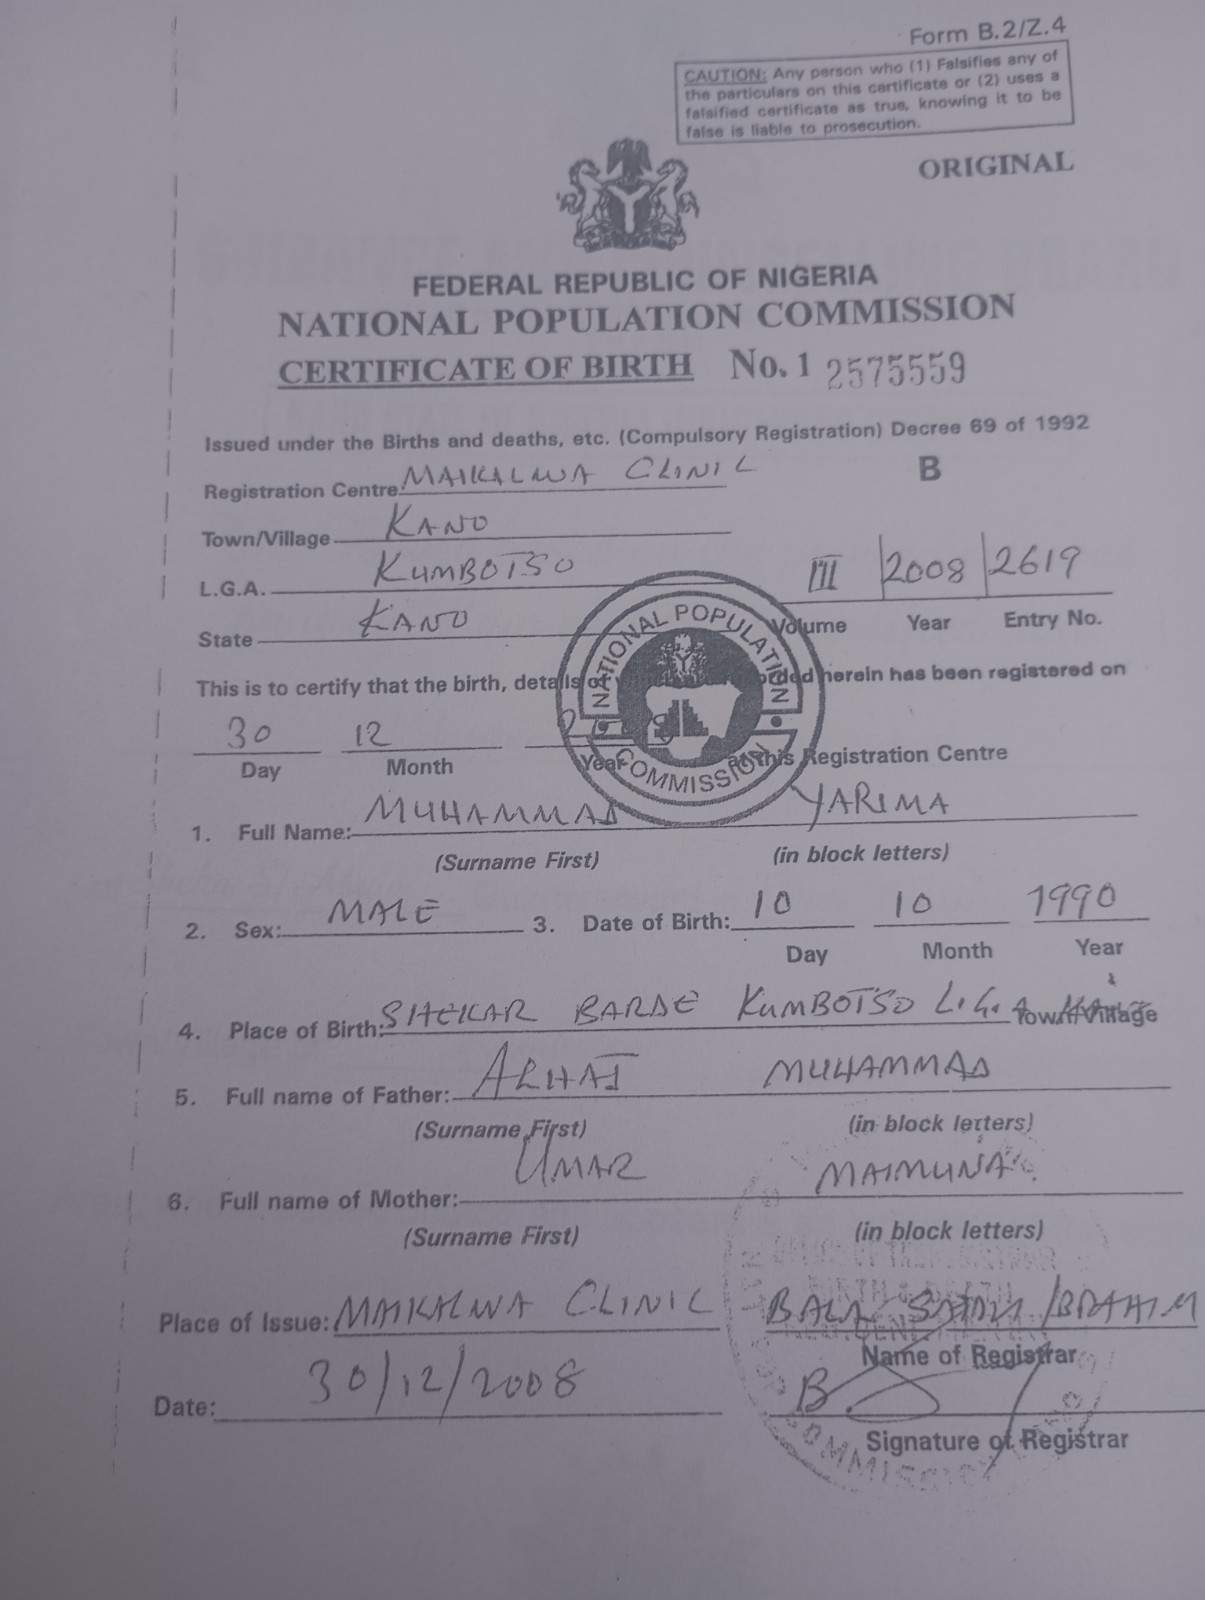 Form B.2/Z.4
CAUTION: Any person who (1) Falsifies any of
the particulars on this certificate or (2) uses a
falsified certificate as true, knowing it to be
false is liable to prosecution.
ORIGINAL
FEDERAL REPUBLIC OF NIGERIA
NATIONAL POPULATION COMMISSION
CERTIFICATE OF BIRTH No. 1 2575559
Issued under the Births and deaths, etc. (Compulsory Registration) Decree 69 of 1992
Registration Centre MAIKALWA CLINIC B
Town/Village KANO
L.G.A. KUMBOTSO III 2008 2619
State KANO Volume Year Entry No.
NATIONAL POPULATION COMMISSION
This is to certify that the birth, details of herein has been registered on
30 12
Day Month Year at this Registration Centre
1. Full Name: MUHAMMAD YARIMA
(Surname First) (in block letters)
2. Sex: MALE 3. Date of Birth: 10 10 1990
Day Month Year
4. Place of Birth: SHEKAR BARDE KUMBOTSO L.G.A Town/Village
5. Full name of Father: ALHAJI MUHAMMAD
(Surname First) (in block letters)
6. Full name of Mother: UMAR MAIMUNA
(Surname First) (in block letters)
Place of Issue: MAIKALWA CLINIC BALA IBRAHIM
Name of Registrar
Date: 30/12/2008 B.
Signature of Registrar